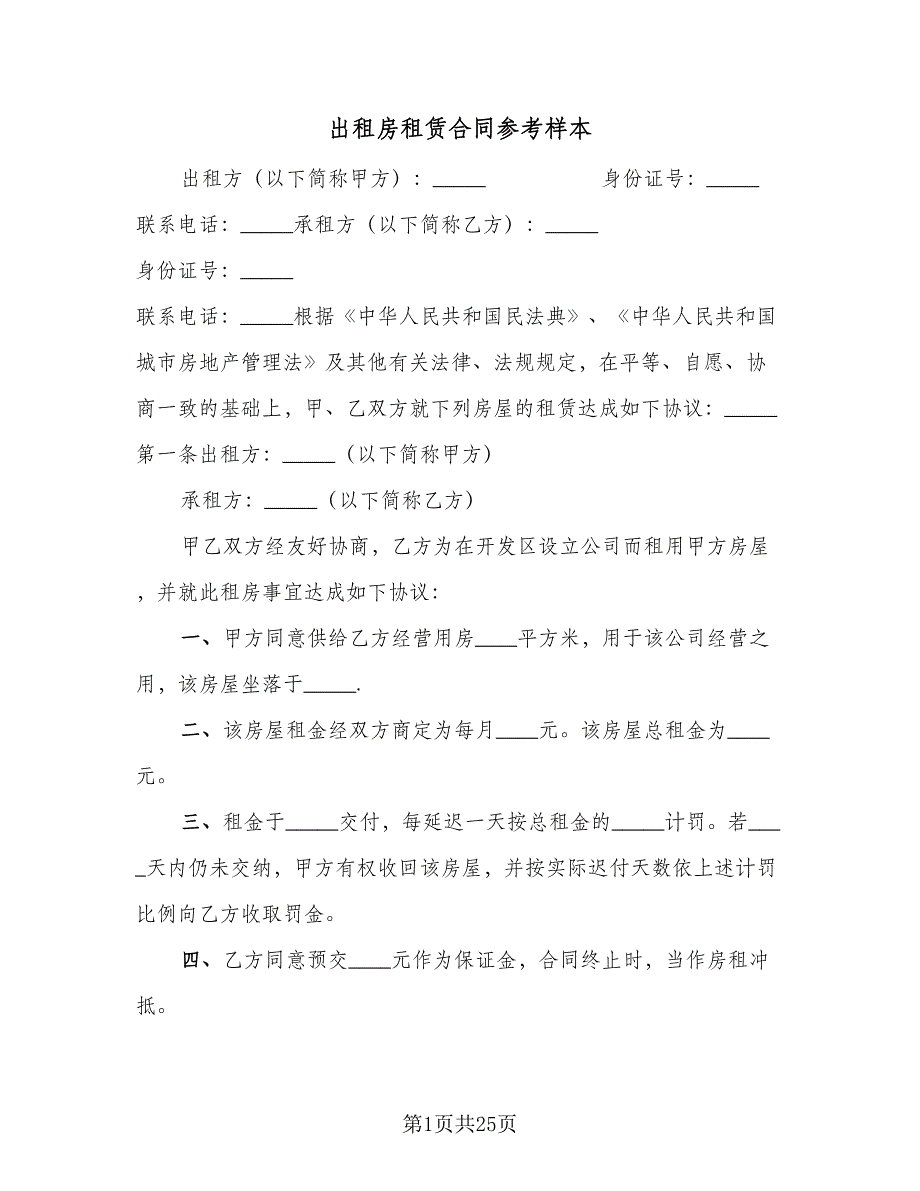 出租房租赁合同参考样本
出租方（以下简称甲方）：_____ 身份证号：_____
联系电话：_____承租方（以下简称乙方）：_____
身份证号：_____
联系电话：_____根据《中华人民共和国民法典》、《中华人民共和国
城市房地产管理法》及其他有关法律、法规规定，在平等、自愿、协
商一致的基础上，甲、乙双方就下列房屋的租赁达成如下协议：_____
第一条出租方：_____（以下简称甲方）
承租方：_____（以下简称乙方）
甲乙双方经友好协商，乙方为在开发区设立公司而租用甲方房屋
，并就此租房事宜达成如下协议：
一、甲方同意供给乙方经营用房____平方米，用于该公司经营之
用，该房屋坐落于_____.
二、该房屋租金经双方商定为每月____元。该房屋总租金为____
元。
三、租金于_____交付，每延迟一天按总租金的_____计罚。若___
_天内仍未交纳，甲方有权收回该房屋，并按实际迟付天数依上述计罚
比例向乙方收取罚金。
四、乙方同意预交____元作为保证金，合同终止时，当作房租冲
抵。
第1页共25页